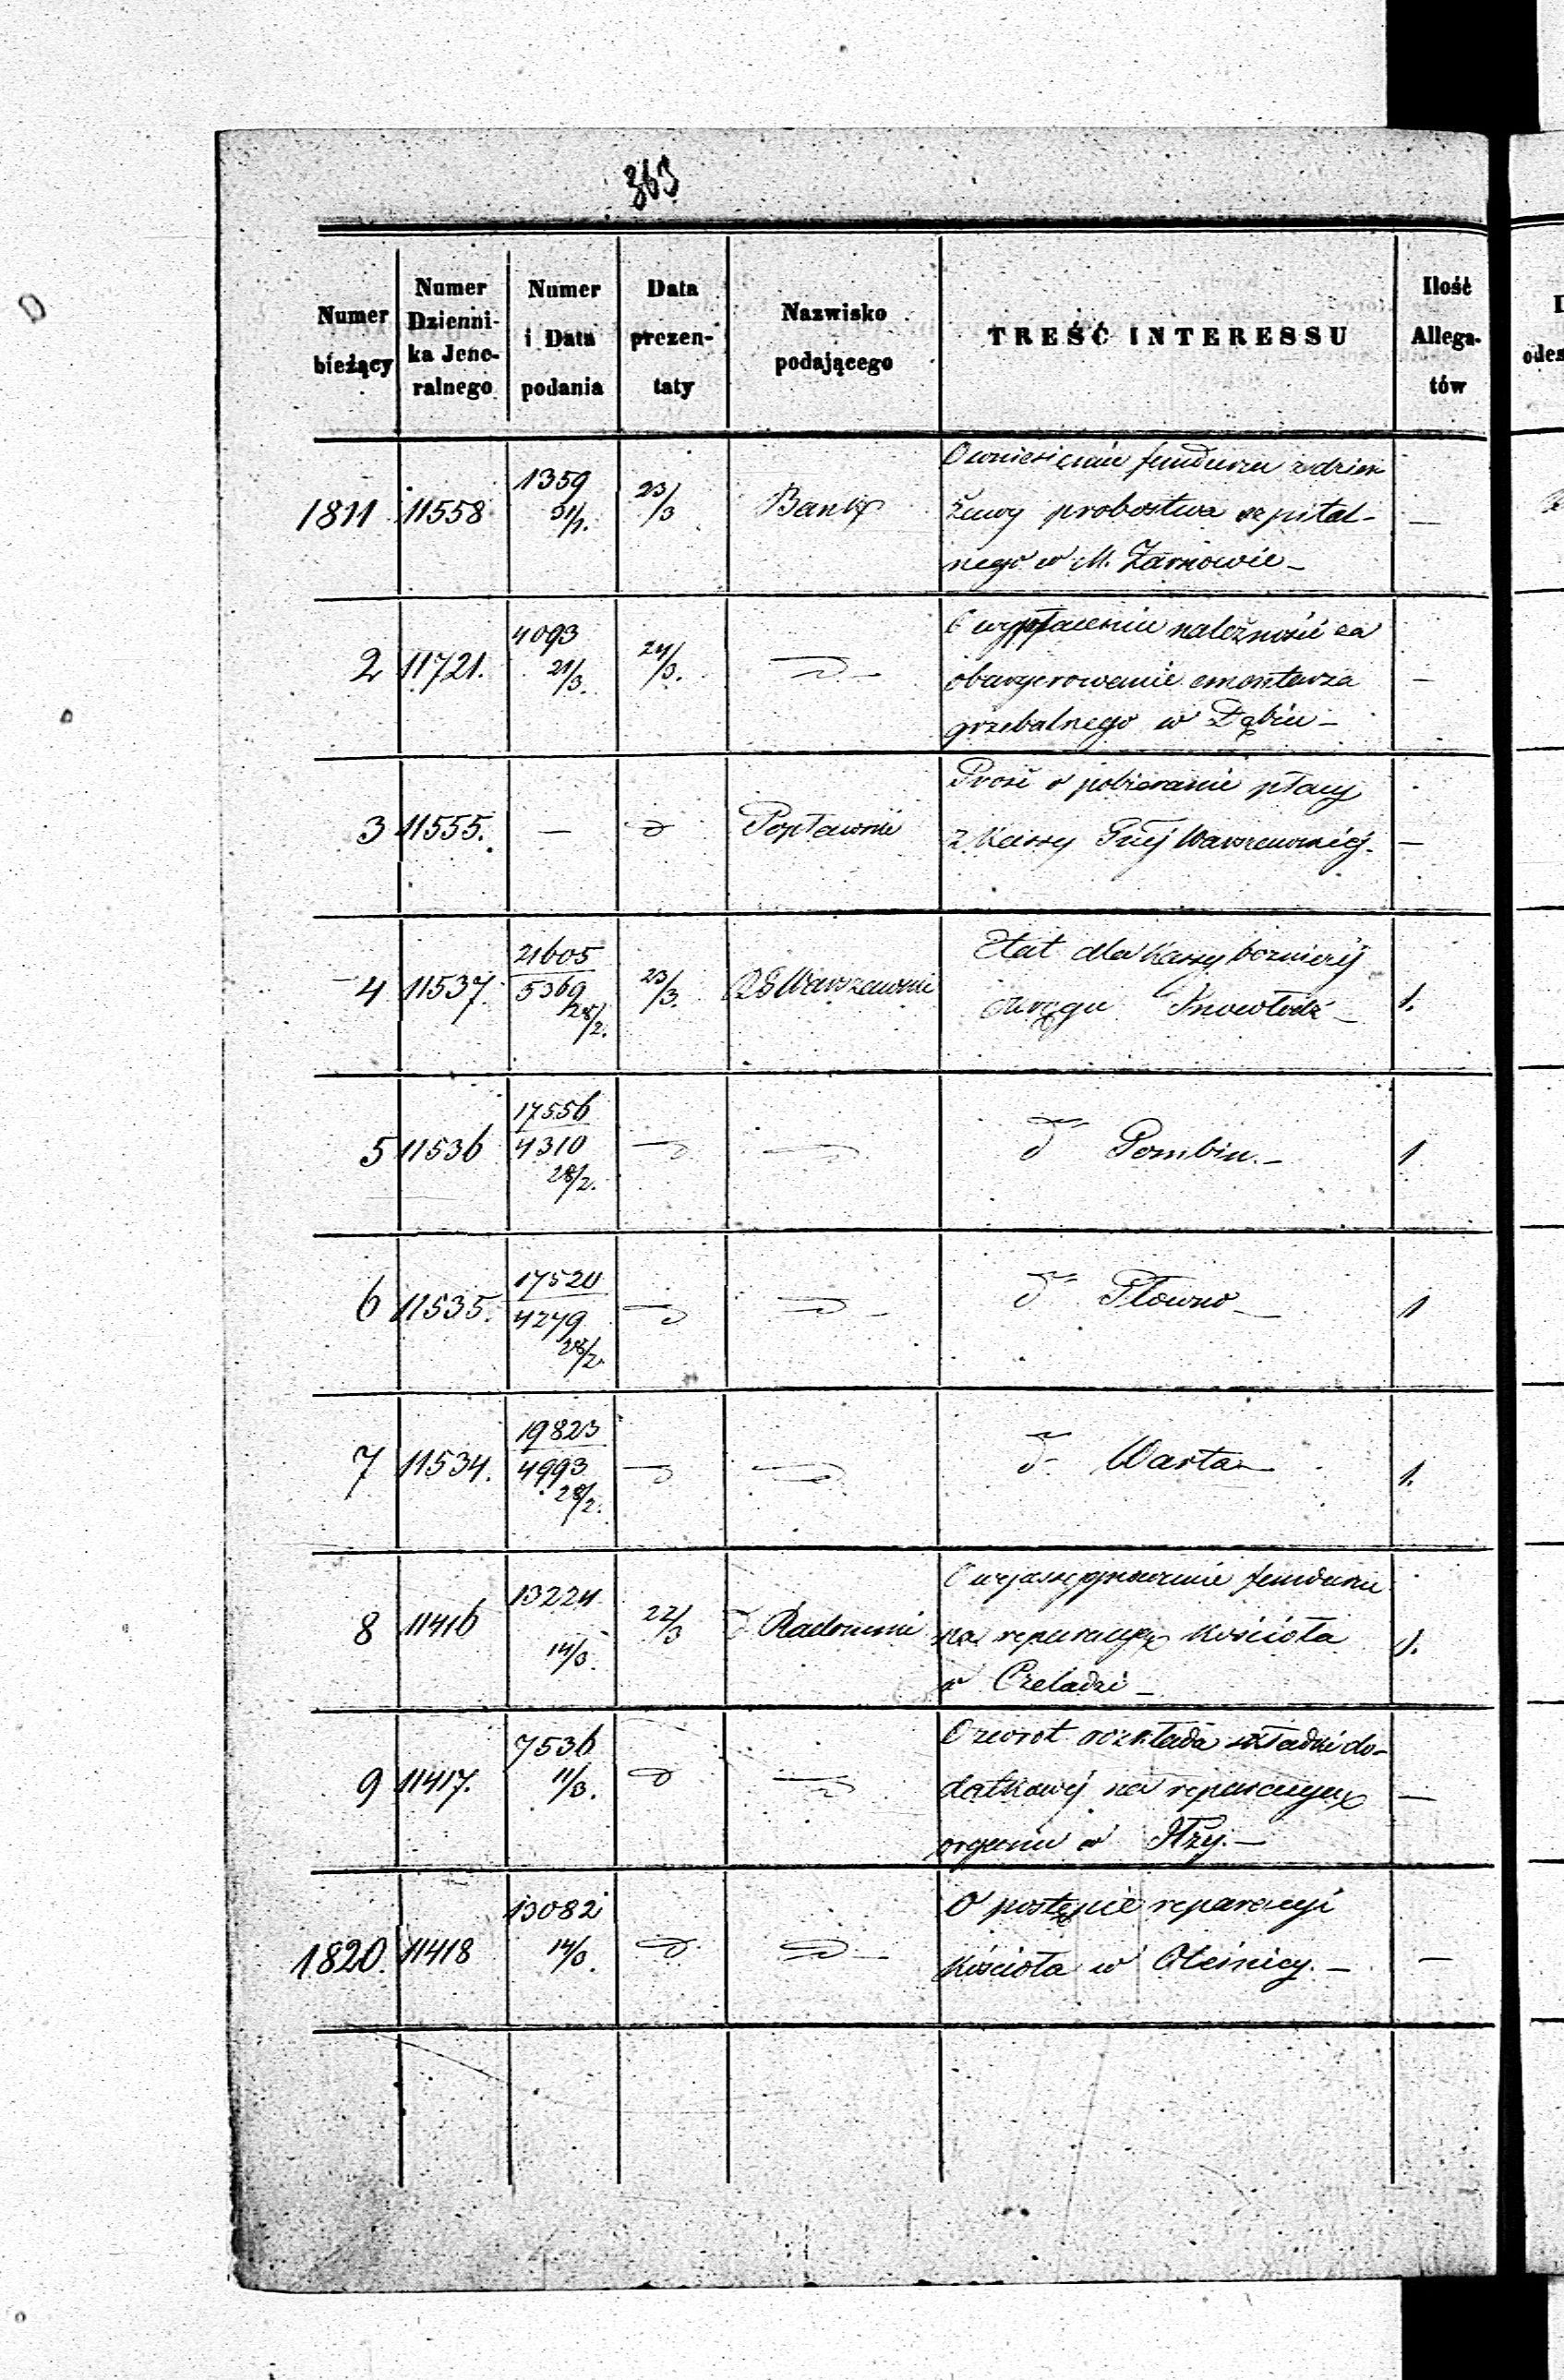 363
Numer bieżący | Numer Dzienni-ka Jene-ralnego | Numer i Data podania | Data prezen-taty | Nazwisko podającego | TREŚĆ INTERESSU | Ilość Allega-tów
1811 | 11558 | 1359 31/1. | 23/3 | Bank | O wniesieniu funduszu z dzier-
żawy probostwa szpital- | —
nego w M. Żarnowie —
2 | 11721. | 4093 21/3. | 24/3. | d° — | O wypłacenie należności za
obwarowanie cmentarza | —
grzebalnego w Dąbiu —
3 | 11555. | — | d° | Popławski | Prosi o pobieranie płacy
z Kassy Głlej Warszawskiej. | —
4 | 11537. | 21605 / 5369 28/2. | 23/3. | RG Warszawski | Etat dla Kassy bożniczej
okręgu Inowłódz — | 1.
5 | 11536 | 17556 / 4310 28/2. | d° | d° | d° Pombin. — | 1
6 | 11535. | 17520 / 4279 28/2. | d° | d° — | d° Pławno — | 1
7 | 11534. | 19823 / 4993 28/2. | d° | d° | d° Warta — | 1.
8 | 11416 | 13224 14/3. | 22/3 | d° Radomski | O funduszu
na reparacyę Kościoła | 1.
w Czeladzi —
9 | 11417. | 7536 11/3. | d° | d° | O zwrot rozkładu składki do-
datkowej na reparacyę | —
organu w Iłży. —
1820. | 11418 | 13082 14/3. | d° | d° — | O postępie reparacyi
Kościoła w Oleśnicy. — | —